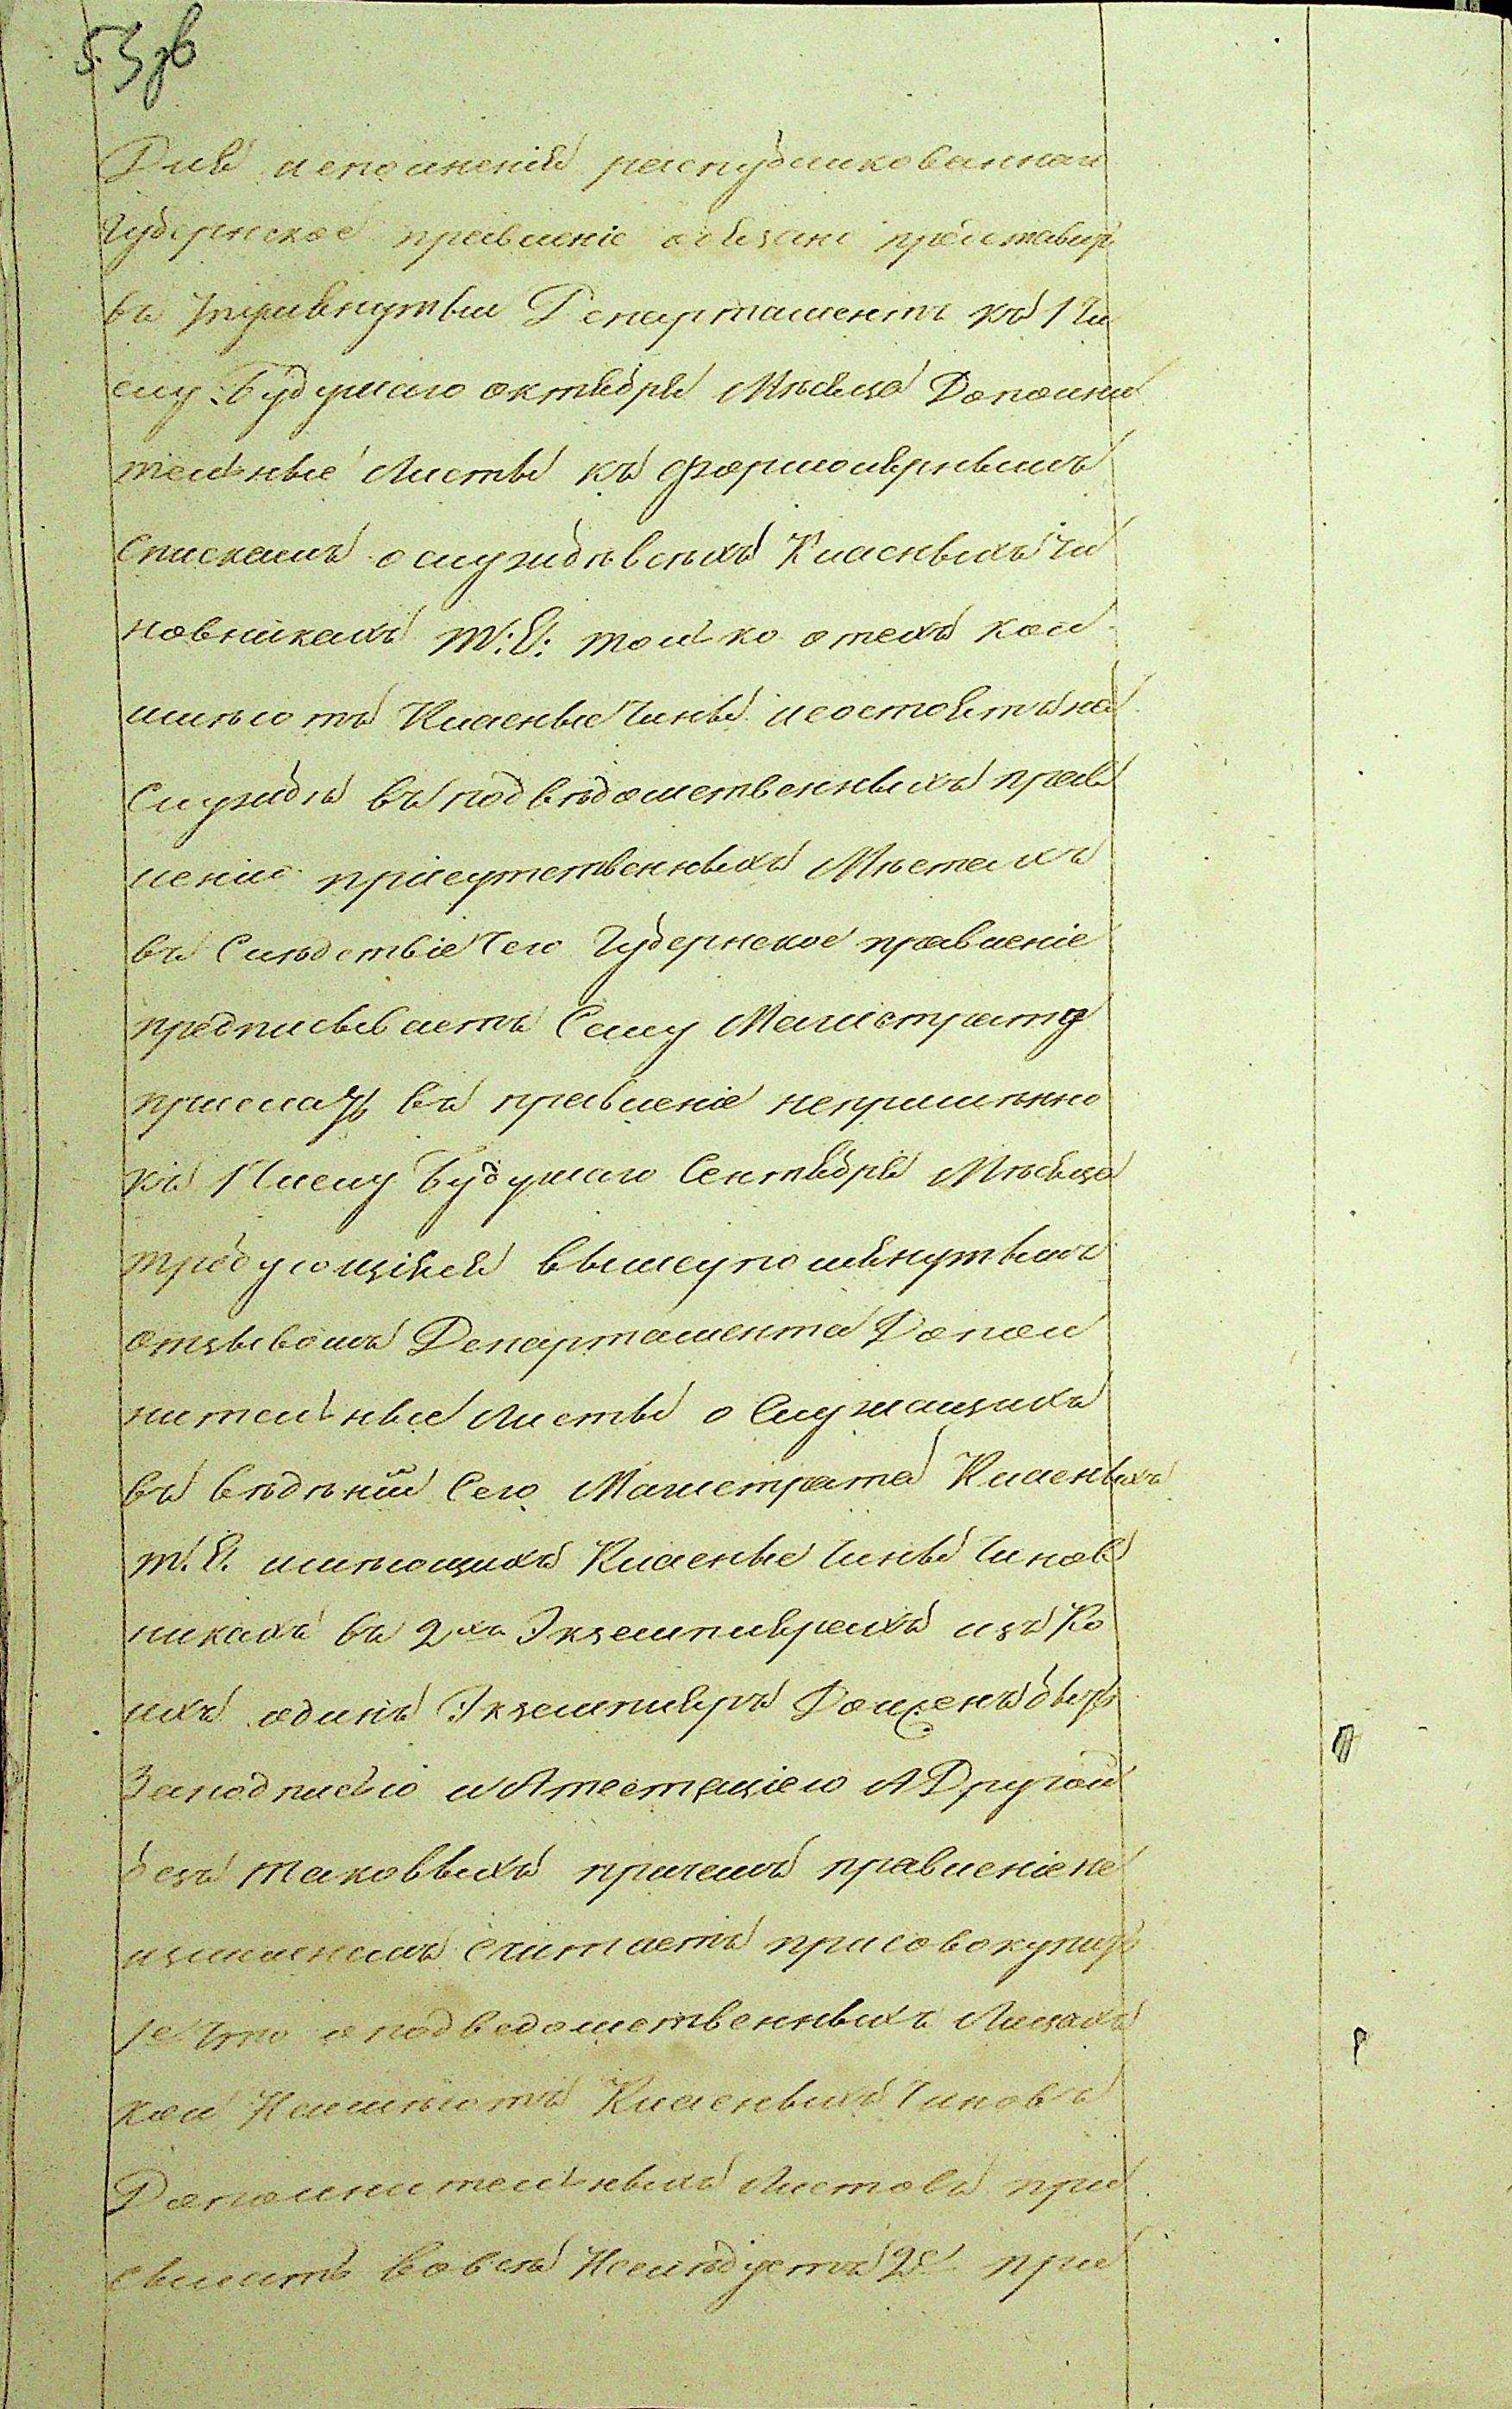 53 зв
Для исполненія распубликованнаго
Губернское правленіе обязано представить
въ упомянутый Департаментъ къ 1 Чи
слу Будущаго октября Мѣсяца Дополни
тельные Листы къ Формулярнымъ
Спискамъ о службѣ всѣхъ Класныхъ Чи
новникахъ т: е: только отехъ кои
имѣютъ Класные Чины исостоятъ на
Службѣ въ подвѣдомственныхъ прав
ленію присутственныхъ Мѣстахъ
въ Слѣдствіе Чего Губернское правленіе
предписываетъ Сему Магистрату
прислать въ правленіе непримѣнно
къ 1 Числу Будущаго Сентября Мѣсяца
требующіяся вышеупомянутымъ
отзывомъ Департамента Допол
нительные Листы о Служащихъ
въ вѣдѣніи Сего Магистрата Класныхъ
т. е. имѣющихъ Класные Чины Чинов
никахъ въ 2хъ Экземплярахъ изъ Ко
ихъ одинъ Экземпляръ Долженъ быть
Заподписью и Атестаціею А Другой
безъ таковыхъ причемъ правленіе не
излишнимъ Считаетъ присовокупить
1е Что о подведомственныхъ Лицахъ
кои Неимѣютъ Класныхъ Чиновъ
Дополнительныхъ Листовъ при
сылать Вовсѣ Неслѣдуетъ 2е при